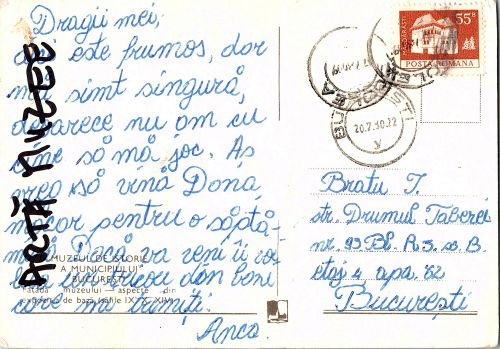 Dragii mei,
este frumos, dar
mă simt singură,
deoarece nu am cu
cine să mă joc. Aș
vrea să vină Dona
măcar pentru o săptă-
mînă. Dacă va veni îi voi
don bani
care mi trimiți.
Anca.
ARTĂ MUZEE
MUZEUL DE ISTORIE
A MUNICIPIULUI
BUCUREȘTI
Fațada muzeului — aspecte din
expoziția de bază (sălile IX, X, XIV)
55 B
POȘTA ROMÂNA
20.7.80.22
Bratu I.
str. Drumul Taberei
nr. 93 Bl. R.5. sc. B
etaj 4 apa. 62
București